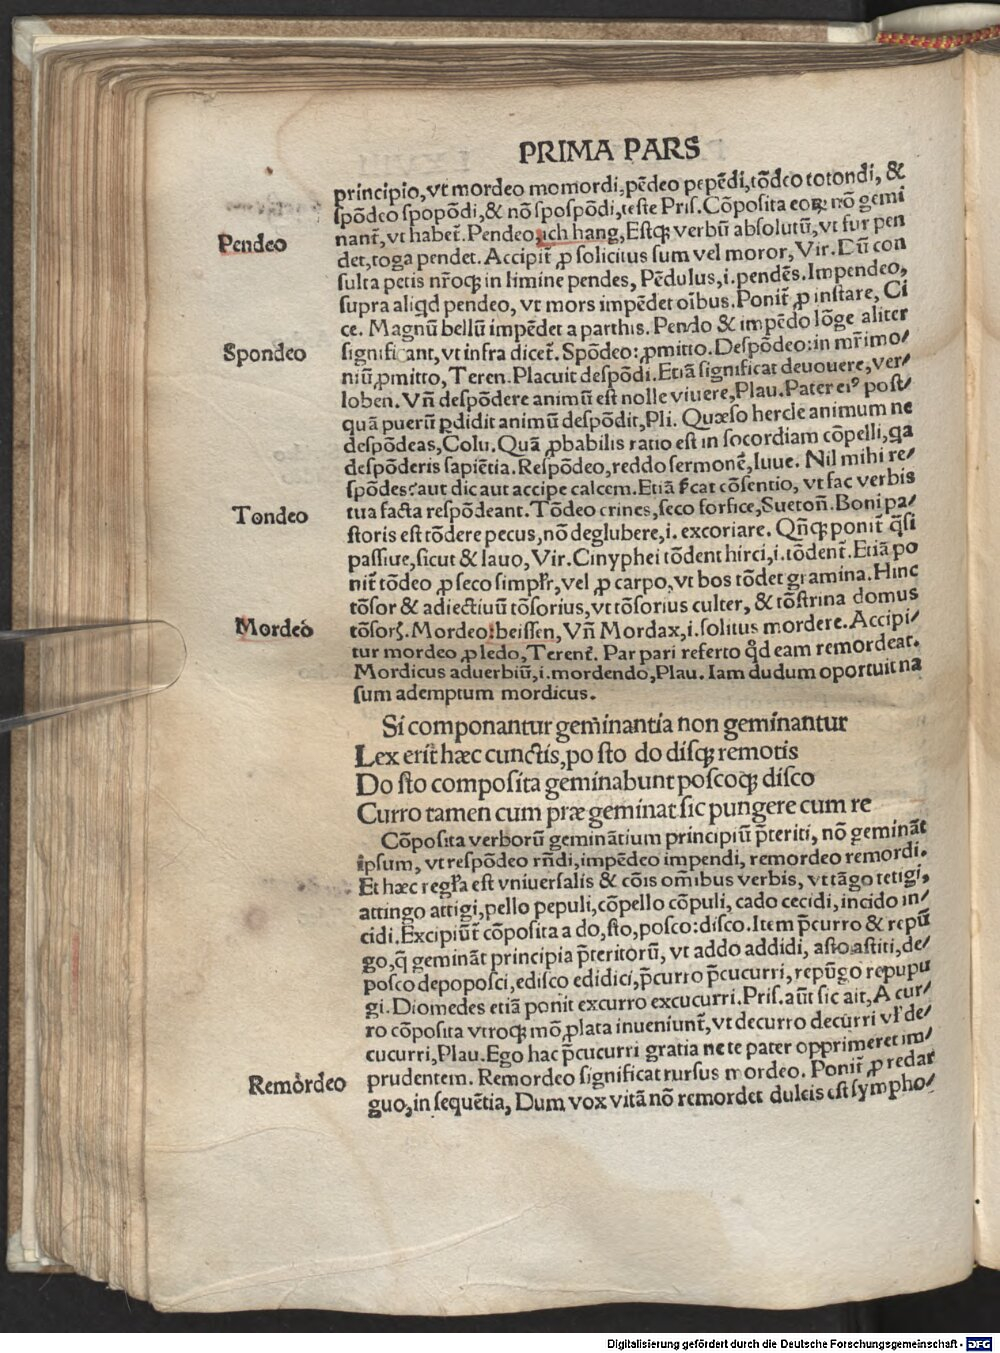 PRIMA PARS
principio, vt mordeo momordi, pēdeo pepēdi, tōdeo totondi, &
spōdeo spopōdi, & nō spospōdi, teste Pris. Cōposita eoꝝ nō gemi
Pendeo
nanť, vt habeť. Pendeo, ich hang, Estqꝫ verbū absolutū, vt fur pen
det, toga pendet. Accipiť ꝓ solicitus sum vel moror, Vir. Dū con
sulta petis nr̄oqꝫ in limine pendes, Pēdulus, i. pendēs. Impendeo,
supra aliqd pendeo, vt mors impēdet oībus. Poniť ꝓ instare, Ci
ce. Magnū bellū impēdet a parthis. Pendo & impēdo lōge aliter
Spondeo
significant, vt infra diceť. Spōdeo: ꝓmitto. Despōdeo: in mr̄imo/
niū ꝓmitto, Teren. Placuit despōdi. Etiā significat deuouere, ver/
loben. Vñ despōdere animū est nolle viuere, Plau. Pater eiꝰ post/
quā puerū ꝑdidit animū despōdit, Pli. Quæso hercle animum ne
despōdeas, Colu. Quā ꝓbabilis ratio est in socordiam cōpelli, qa
despōderis sapiētia. Respōdeo, reddo sermonē, Iuue. Nil mihi re/
spōdes: aut dic aut accipe calcem. Etiā s̄cat cōsentio, vt fac verbis
Tondeo
tua facta respōdeant. Tōdeo crines, seco forfice, Suetoñ. Boni pa/
storis est tōdere pecus, nō deglubere, i. excoriare. Qñqꝫ poniť q̄si
passiue, sicut & lauo, Vir. Cinyphei tōdent hirci, i. tōdenť. Etiā po
niť tōdeo ꝓ seco simpłr, vel ꝓ carpo, vt bos tōdet gramina. Hinc
tōsor & adiectiuū tōsorius, vt tōsorius culter, & tōstrina domus
Mordeo
tōsorꝝ. Mordeo: beissen, Vñ Mordax, i. solitus mordere. Accipi/
tur mordeo ꝓ ledo, Terenť. Par pari referto qd̄ eam remordeat.
Mordicus aduerbiū, i. mordendo, Plau. Iam dudum oportuit na
sum ademptum mordicus.
Si componantur geminantia non geminantur
Lex erit hæc cunctis, po sto do disqꝫ remotis
Do sto composita geminabunt poscoqꝫ disco
Curro tamen cum præ geminat sic pungere cum re
Cōposita verborū geminātium principiū p̄teriti, nō gemināt
ipsum, vt respōdeo rñdi, impēdeo impendi, remordeo remordi.
Et hæc regľa est vniuersalis & cōis om̄ibus verbis, vt tāgo tetigi,
attingo attigi, pello pepuli, cōpello cōpuli, cado cecidi, incido in/
cidi. Excipiūť cōposita a do, sto, posco: disco. Item p̄curro & repū
go, q̄ gemināt principia p̄teritorū, vt addo addidi, asto astiti, de/
posco depoposci, edisco edidici, p̄curro p̄cucurri, repūgo repupu
gi. Diomedes etiā ponit excurro excucurri. Pris. aūt sic ait, A cur/
ro cōposita vtroqꝫ mō ꝓlata inueniunť, vt decurro decurri vł de/
cucurri, Plau. Ego hac p̄cucurri gratia ne te pater opprimeret im/
Remordeo
prudentem. Remordeo significat rursus mordeo. Poniť ꝓ redar
guo, in sequētia, Dum vox vitā nō remordet dulcis est sympho/
Digitalisierung gefördert durch die Deutsche Forschungsgemeinschaft - DFG